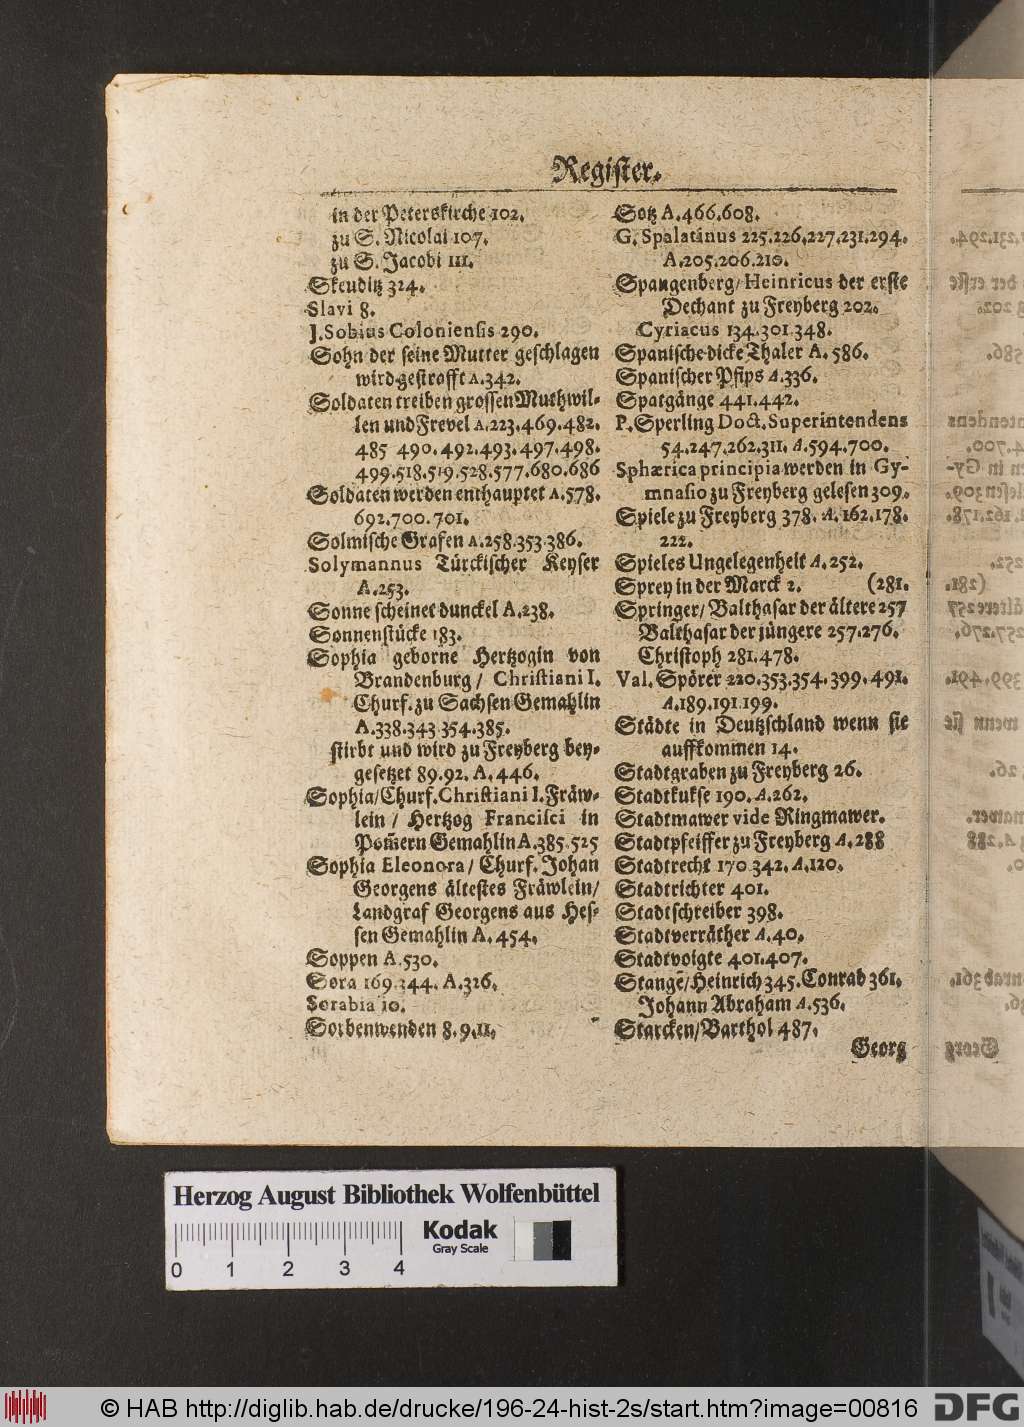 Register.
in der Peterskirche 102.
zu S. Nicolai 107.
zu S. Jacobi 111.
Skeuditz 324.
Slavi 8.
J. Sobius Coloniensis 290.
Sohn der seine Mutter geschlagen
wird gestrafft A.342.
Soldaten treiben grossen Muthwil-
len und Frevel A.223.469.482.
485 490.492.493.497.498.
499.518.519.528.577.680.686
Soldaten werden enthauptet A.578.
692.700.701.
Solmische Grafen A.258.353.386.
Solymannus Türckischer Keyser
A.253.
Sonne scheinet dunckel A.238.
Sonnenstücke 183.
Sophia geborne Hertzogin von
Brandenburg / Christiani I.
Churf. zu Sachsen Gemahlin
A.338.343 354.385.
stirbt und wird zu Freyberg bey-
gesetzet 89.92. A.446.
Sophia/Churf. Christiani I. Fräw-
lein / Hertzog Francisci in
Pom̃ern Gemahlin A.385.525
Sophia Eleonora / Churf. Johan
Georgens ältestes Fräwlein/
Landgraf Georgens aus Hes-
sen Gemahlin A. 454.
Soppen A.530.
Sora 169.344. A.326.
Sorabia 10.
Sorbenwenden 8.9.11.
Sotz A.466.608.
G. Spalatinus 225.226.227.231.294.
A.205.206.210.
Spangenberg/Heinricus der erste
Dechant zu Freyberg 202.
Cyriacus 134.301.348.
Spanische dicke Thaler A. 586.
Spanischer Pfips A.336.
Spatgänge 441.442.
P. Sperling Doct. Superintendens
54.247.262.311. A.594.700.
Sphærica principia werden in Gy-
mnasio zu Freyberg gelesen 309.
Spiele zu Freyberg 378. A.162.178.
222.
Spieles Ungelegenheit A.252.
Sprey in der Marck 2. (281.
Springer/ Balthasar der ältere 257
Balthasar der jüngere 257.276.
Christoph 281.478.
Val. Spörer 220.353.354.399.491.
A.189.191.199.
Städte in Deutzschland wenn sie
auffkommen 14.
Stadtgraben zu Freyberg 26.
Stadtkukse 190. A.262.
Stadtmawer vide Ringmawer.
Stadtpfeiffer zu Freyberg A.288
Stadtrecht 170.342. A.120.
Stadtrichter 401.
Stadtschreiber 398.
Stadtverräther A.40.
Stadtvoigte 401.407.
Stange/Heinrich 345. Conrad 361.
Johann Abraham A.536.
Starcken/Barthol 487.
Georg
Herzog August Bibliothek Wolfenbüttel
Kodak
Gray Scale
0 1 2 3 4
© HAB http://diglib.hab.de/drucke/196-24-hist-2s/start.htm?image=00816
DFG